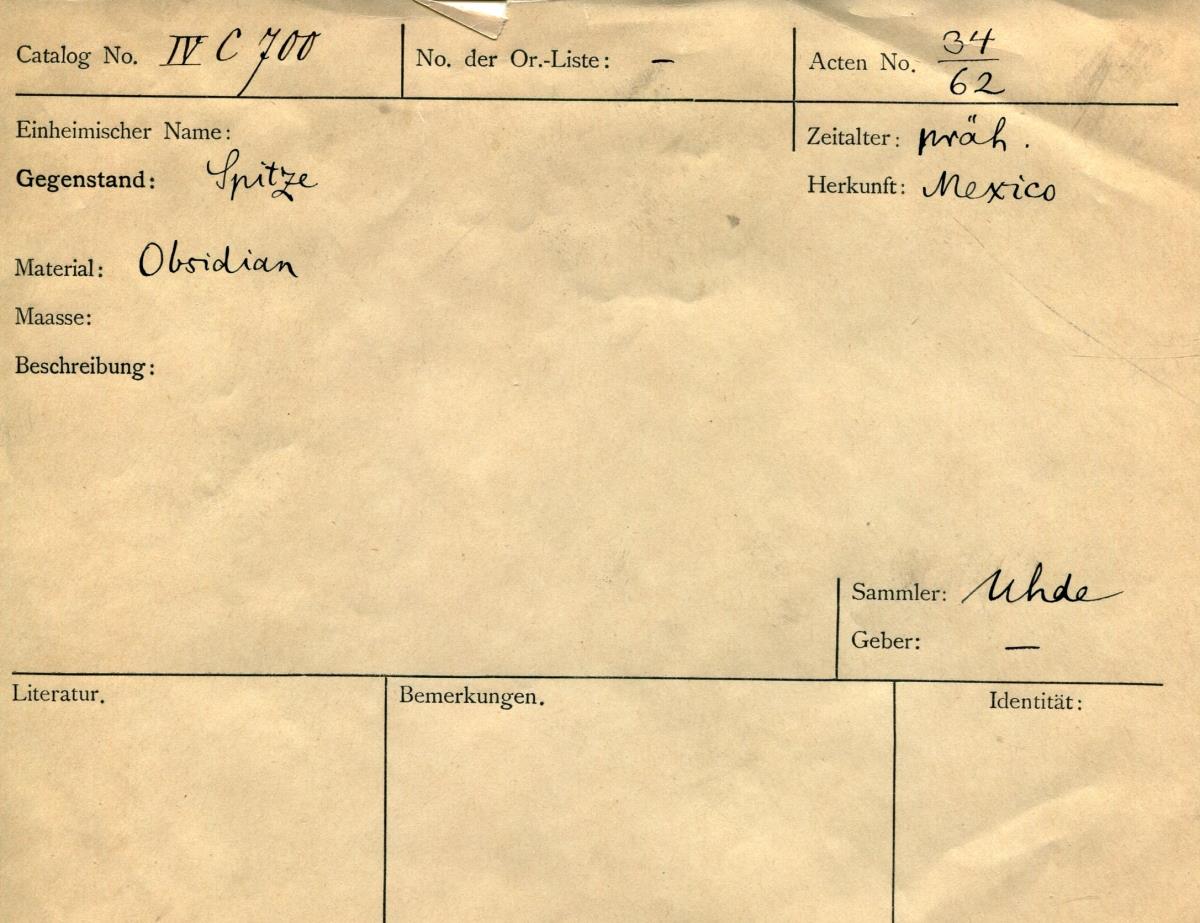 Catalog No. IV C 700 No. der Or.-Liste: — Acten No. 34/62
Einheimischer Name: Zeitalter: präh.
Gegenstand: Spitze Herkunft: Mexico
Material: Obsidian
Maasse:
Beschreibung:
Sammler: Uhde
Geber: —
Literatur. Bemerkungen. Identität: